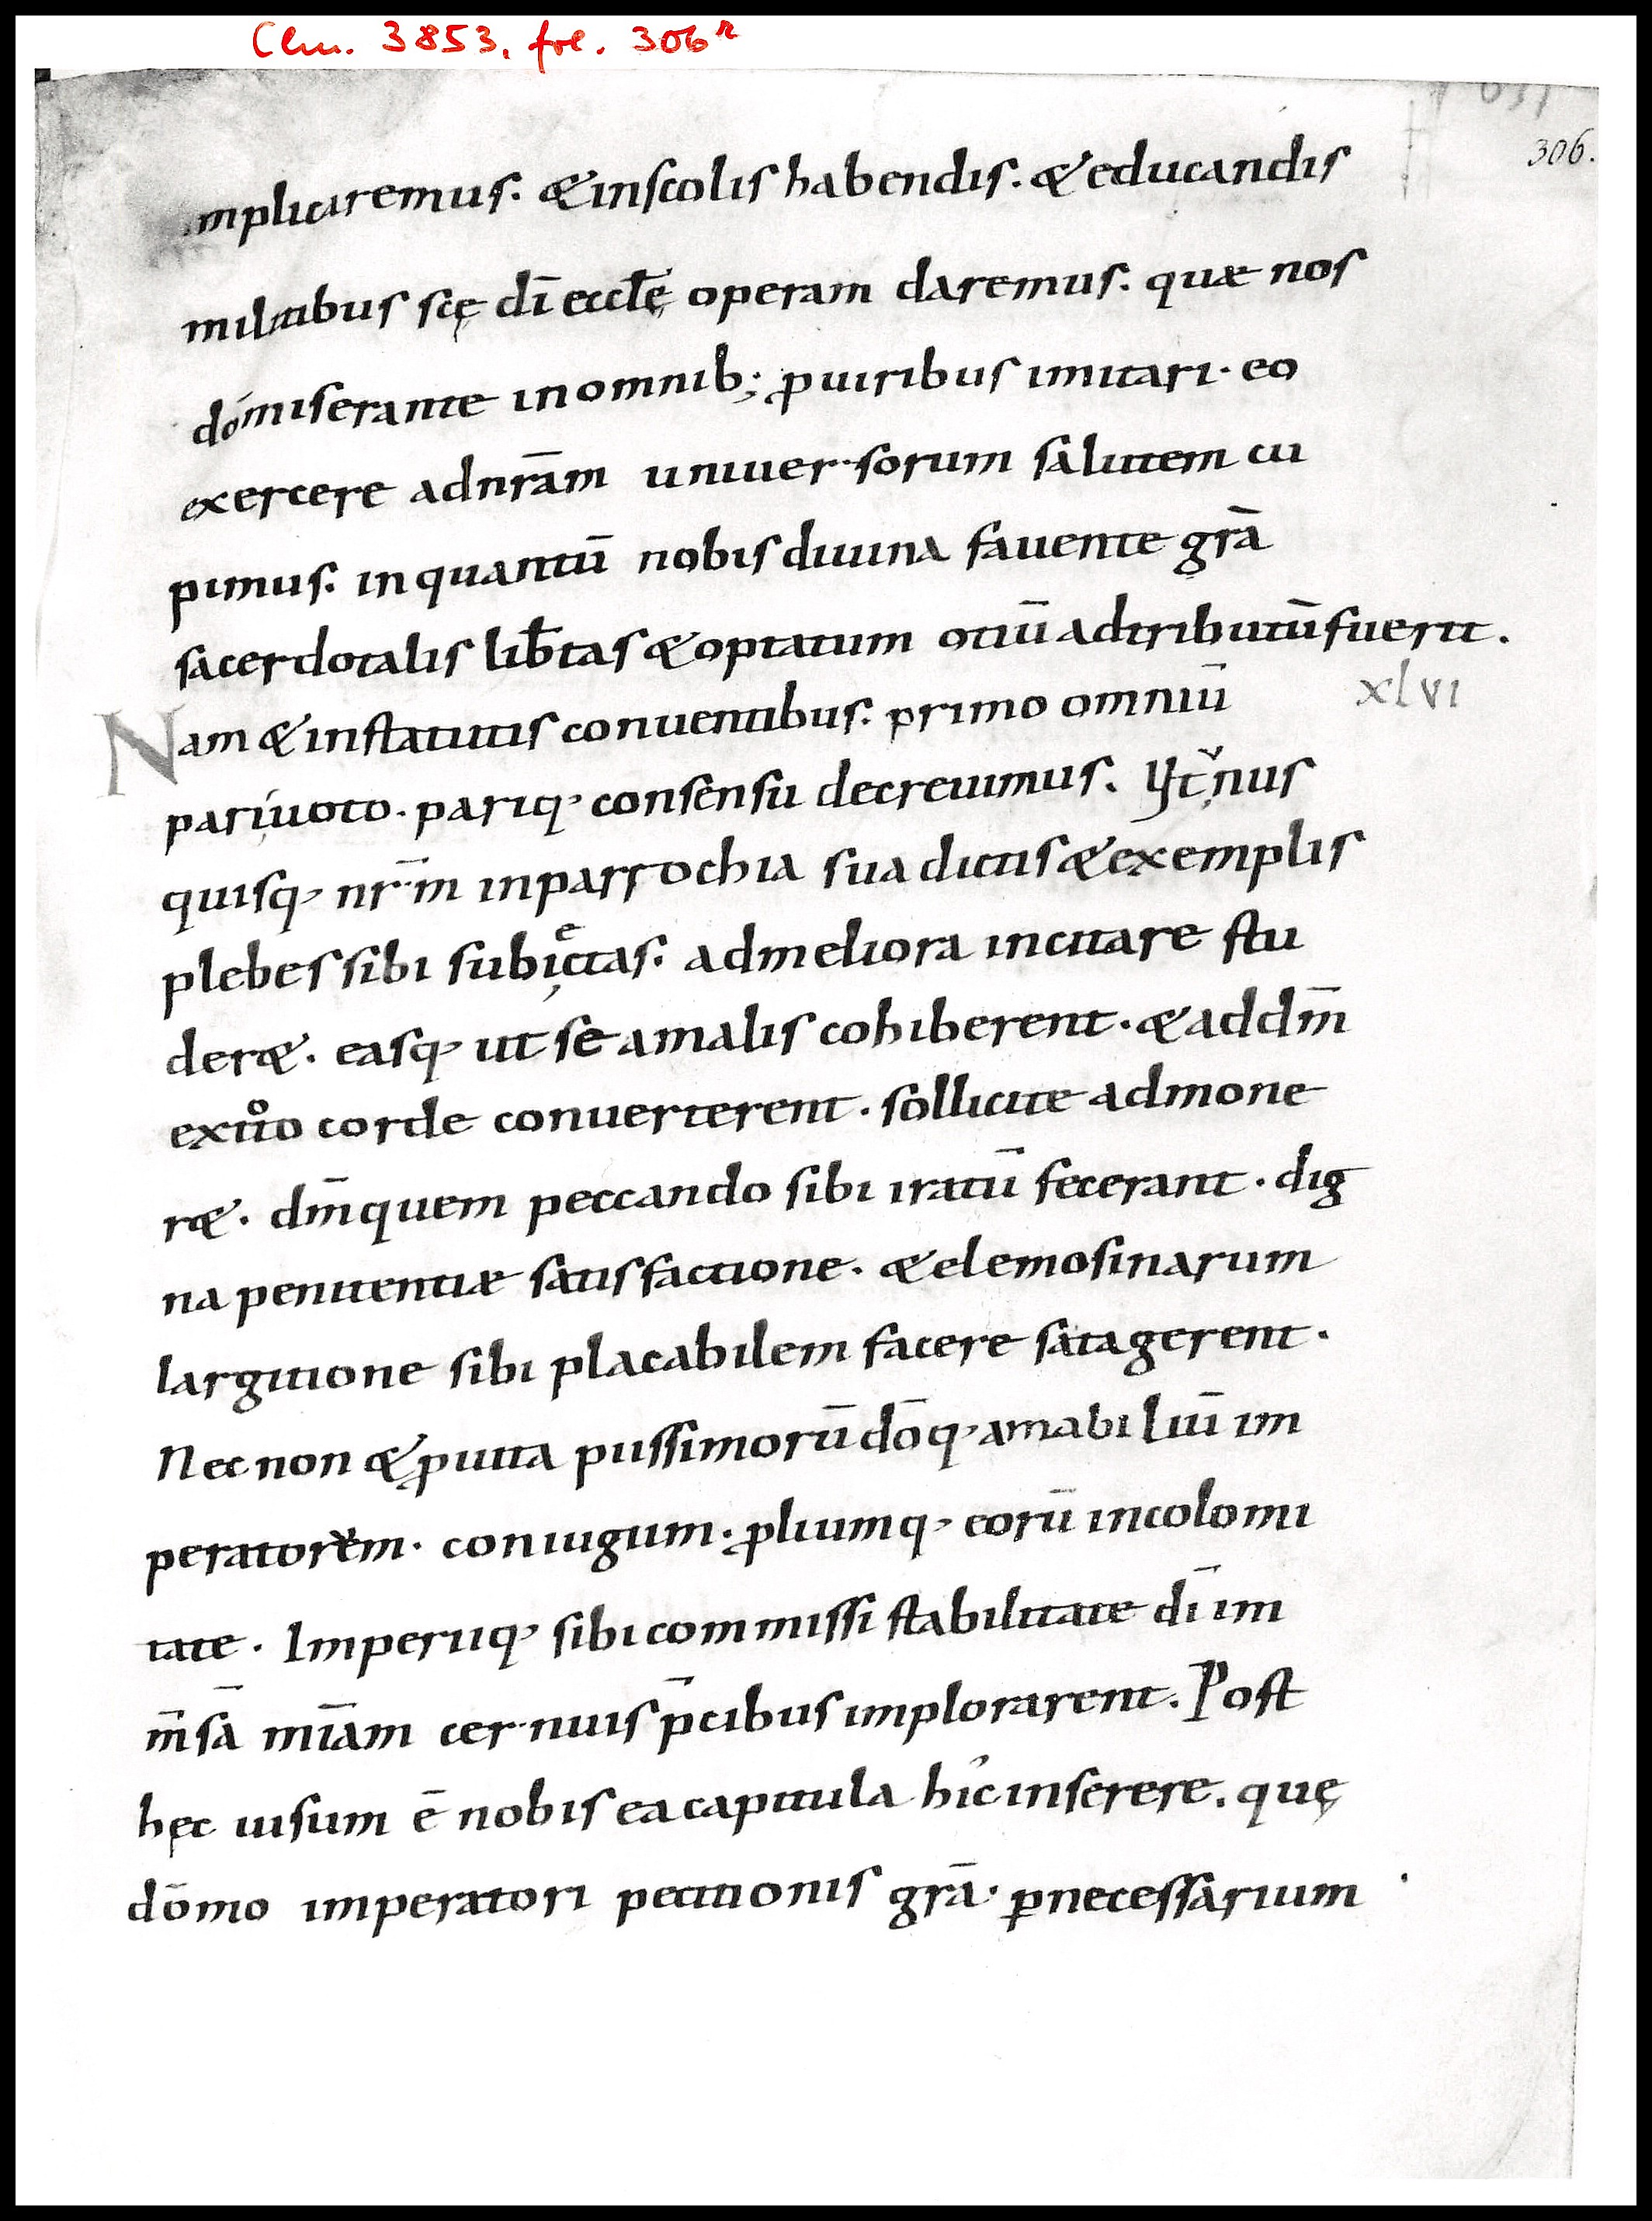 Clm. 3853, fol. 306r
306.
mplicaremus. & inscolis habendis. & educandis
militibus scę dī eccłę operam daremus. quæ nos
dō miserante inomnib; ꝓuiribus imitari. eo
exercere adnr̄am uniuersorum salutem cu
pimus. inquantū nobis diuina fauente grā
sacerdotalis lib̄tas & optatum otiū adtributū fuerit.
Nam & instatutis conuentibus. primo omniū
xlvi
pari uoto. pariq; consensu decreuimus. Ut unus
quisq; nr̄m inparrochia sua dictis & exemplis
plebes sibi subiectas. admeliora incitare stu
der&. easq; ut se amalis cohiberent. & addm̄
extoto corde conuerterent. sollicite admone
r&. dm̄ quem peccando sibi iratū fecerant. dig
na penitentiæ satisfactione. & elemosinarum
largitione sibi placabilem facere satagerent.
Nec non & ꝓuita piissimorū dōq; amabiliū im
peratorem. coniugum. ꝓliumq; eorū incolomi
tate. Imperiiq; sibi commissi stabilitate dī im
m̄sā mīam cernuis p̄cibus implorarent. Post
hęc uisum ē nobis ea capitula hic inserere. quę
dōmo imperatori petitionis grā. ꝑnecessarium